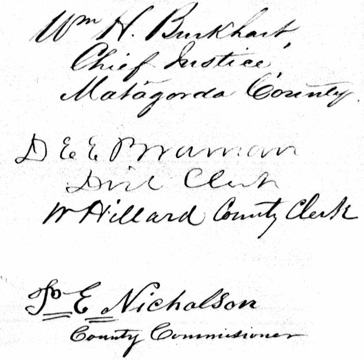 Wm H. Burkhart,
Chief Justice,
Matagorda County.
D E E Braman
Dist Clerk
W Hillard County Clerk
Jo E Nicholson
County Commisioner